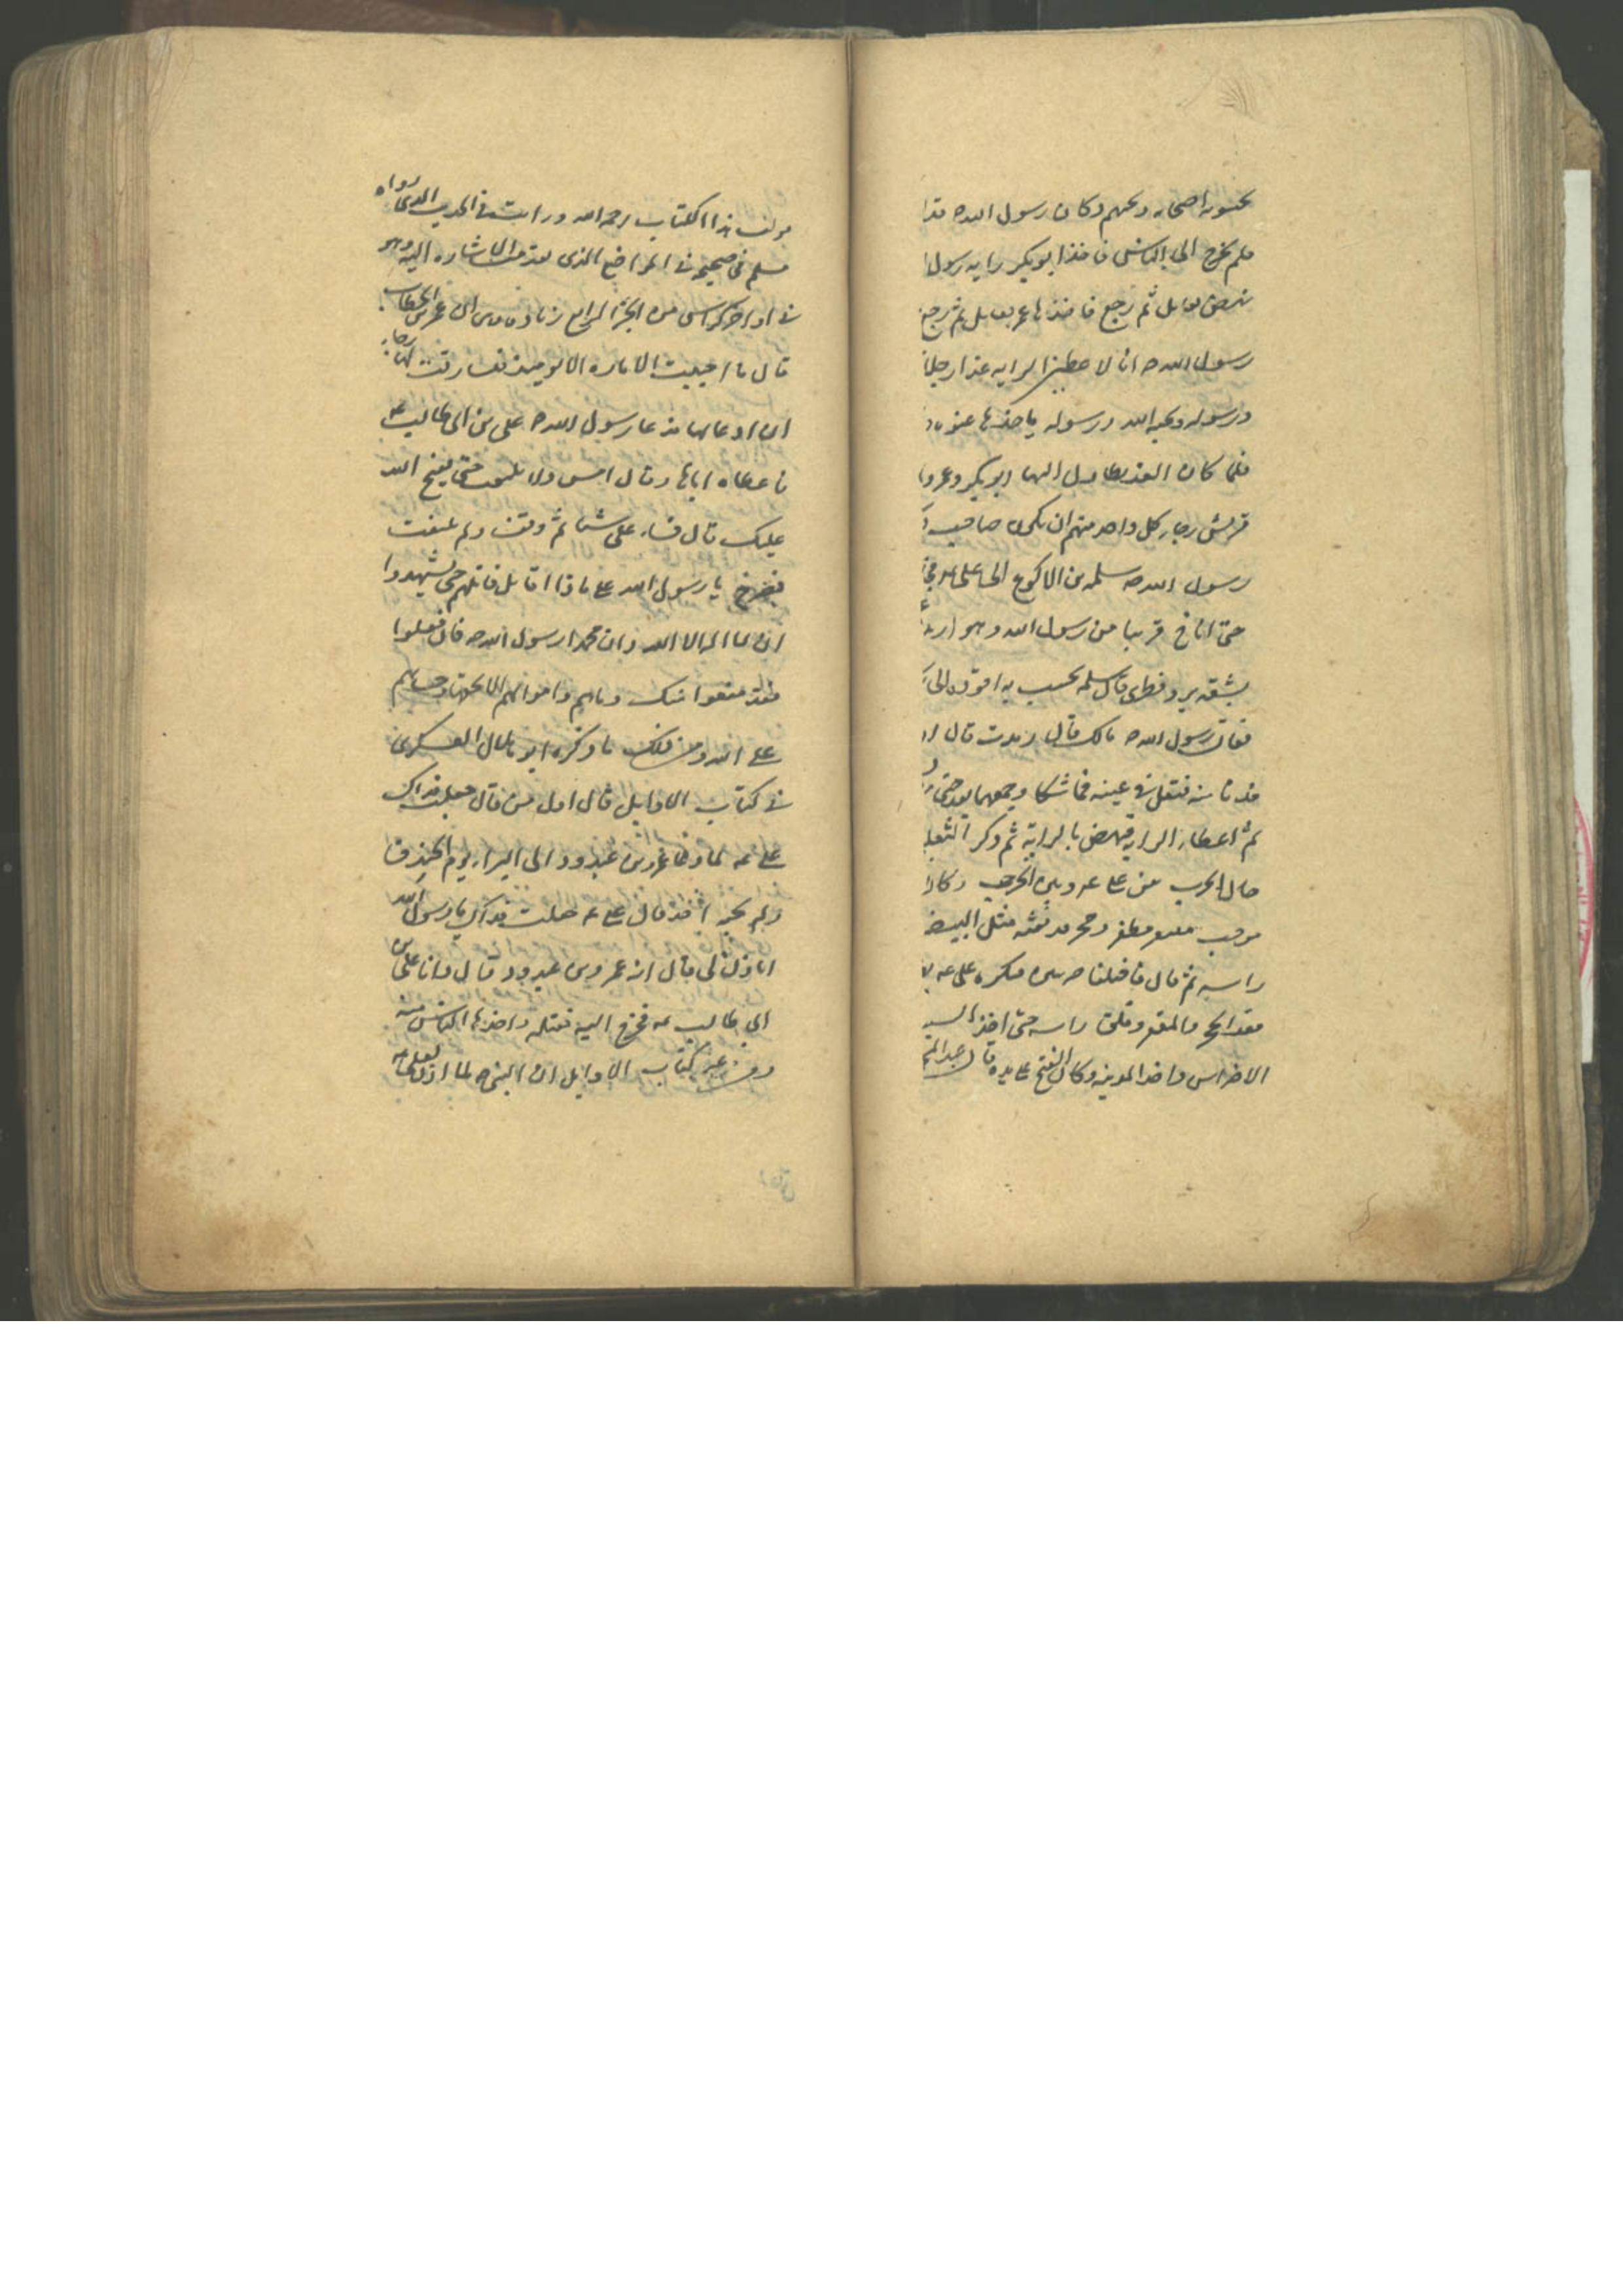 يحبنونه اصحابه ويجبنهم وكان رسول الله ص قد ا
فلم يخرج الى الناس فاخذ ابو بكر رايه رسول ا
نهض يقاتل ثم رجع فاخذها عمر يقاتل ثم رجع
رسول الله ص انا لاعطين الرايه غدا رجلا
ورسوله ويحبه الله ورسوله ياخذها عنوه
فلما كان الغد تطاول اليها ابو بكر وعمر وا
قريش رجا كل واحد منهم ان يكون صاحب
رسول الله ص سلمه بن الاكوع الى على
حتى اناخ قريبا من رسول الله وهو ارمد
بشقه برد قطرى قال سلمه
فقال رسول الله ص مالك قال رمدت قال اد
فدنا منه فتفل فى عينه فما شكا وجعهما بعد حتى
ثم اعطاه الرايه فنهض بالرايه ثم ذكر الثعلبى
حال الحرب بين على وبين مرحب وكان
مرحب مغفر وحجر قد نقبه مثل البيضه
راسه ثم قال فاختلفا ضربتين فبدره على
فقد الحجر والمغفر وفلق راسه حتى اخذ السيف
الاضراس واخذ المدينه وكان الفتح على يده قال عبد المح
مولف هذا الكتاب رحمه الله ورايت فى الحديث الذى رواه
مسلم فى صحيحه فى المواضع الذى تقدمت الاشاره اليه وهو
فى اواخر كراس من الجزء الرابع زياده وهى ان عمر بن الخطاب
قال ما احببت الاماره الا يومئذ فتساورت لها رجاء
ان ادعا لها فدعا رسول الله ص على بن ابى طالب ع
فاعطاه اياها وقال امش ولا تلتفت حتى يفتح الله
عليك قال فسار على شيئا ثم وقف ولم يلتفت
فصرخ يا رسول الله على ماذا اقاتل قال قاتلهم حتى يشهدوا
ان لا اله الا الله وان محمدا رسول الله ص فاذا فعلوا
فقد منعوا منك دماهم واموالهم الا بحقها وحسابهم
على الله ومن ذلك ما ذكره ابو هلال العسكرى
فى كتاب الاوايل قال اول من قال جعلت فداك
على ع لما دعا عمرو بن عبدود الى البراز يوم الخندق
ولم يجبه احد قال على ع جعلت فداك يا رسول الله
اتاذن لى قال انه عمرو بن عبدود قال وانا على بن
ابى طالب ع فخرج اليه فقتله واخذ الناس منه
ومن غير كتاب الاوايل ان النبى ص لما اذن لعلى ع